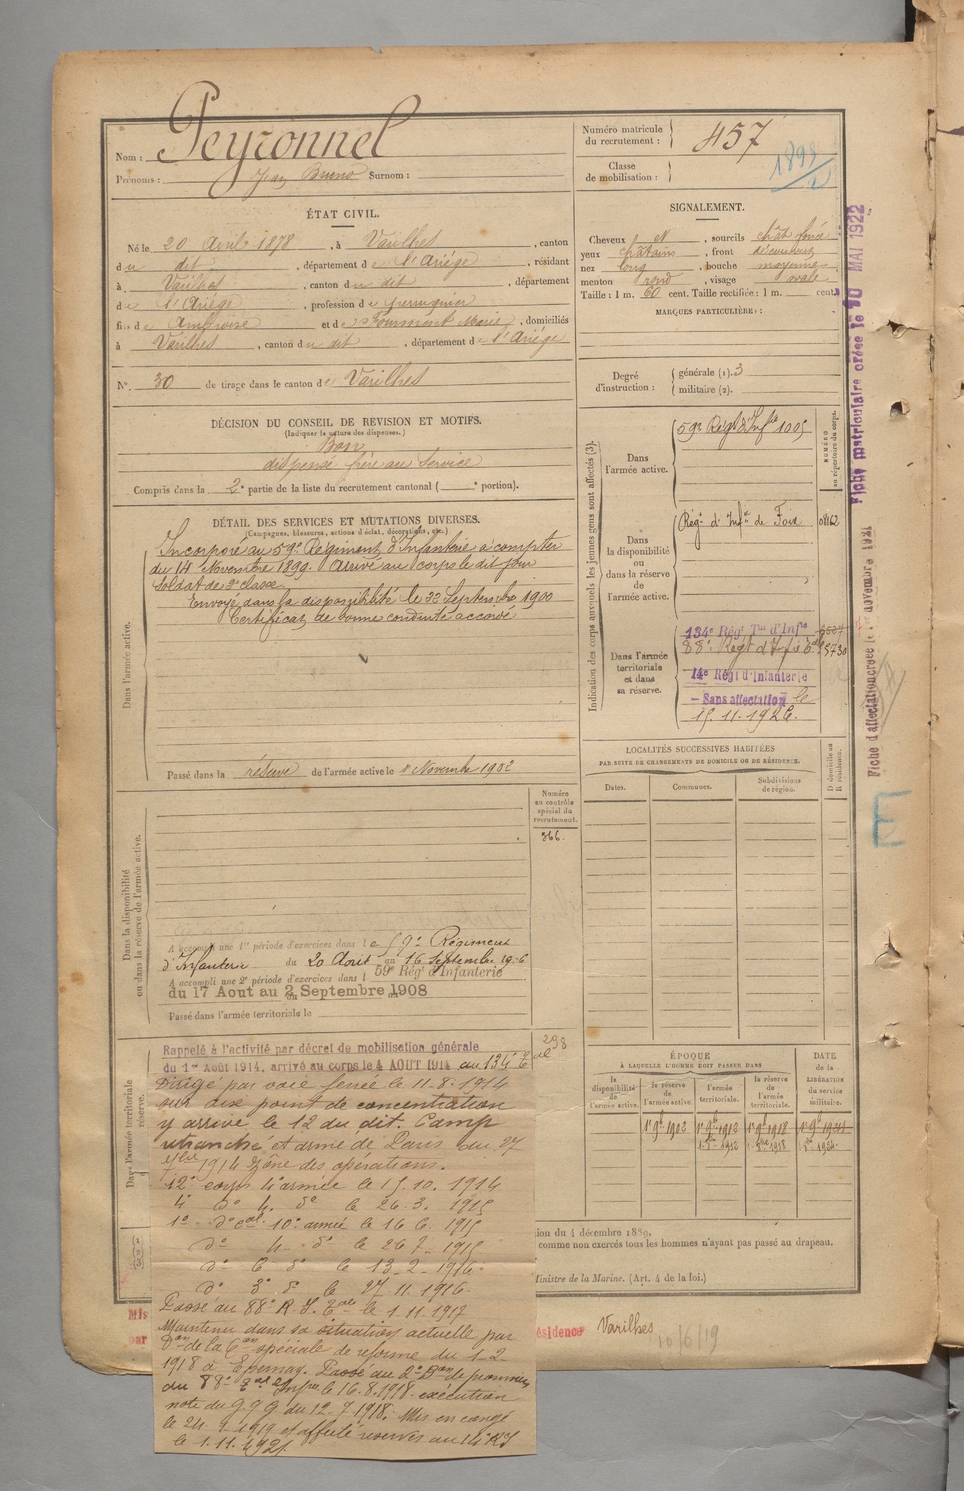 Nom : Peyronnel
Prénoms : Jean Bruno Surnom :
Numéro matricule du recrutement : 457
Classe de mobilisation :
1898
ÉTAT CIVIL.
Né le 20 Avril 1878, à Varilhes, canton
du dit, département de l'Ariège, résidant
à Varilhes, canton du dit, département
de l'Ariège, profession de
fils de Ambroise et de Fourment Marie, domiciliés
à Varilhes, canton du dit, département de l'Ariège
N° 30 de tirage dans le canton de Varilhes
SIGNALEMENT.
Cheveux et, sourcils chât. foncé
yeux châtains, front découvert
nez long, bouche moyenne
menton rond, visage ovale
Taille : 1 m. 60 cent. Taille rectifiée : 1 m. cent.
MARQUES PARTICULIÈRES :
Degré d'instruction : générale (1). 3
militaire (2).
DÉCISION DU CONSEIL DE REVISION ET MOTIFS.
(Indiquer la nature des dispenses.)
Bon
dispensé frère au service
Compris dans la 2e partie de la liste du recrutement cantonal ( e portion).
DÉTAIL DES SERVICES ET MUTATIONS DIVERSES.
(Campagnes, blessures, actions d'éclat, décorations, etc.)
Dans l'armée active.
Incorporé au 59e Régiment d'Infanterie à compter
du 14 Novembre 1899. Arrivé au corps le dit jour
Soldat de 2e classe.
Envoyé dans la disponibilité le 22 Septembre 1900
Certificat de bonne conduite accordé
Passé dans la réserve de l'armée active le 1er Novembre 1902
Indication des corps auxquels les jeunes gens sont affectés (3).
NUMÉRO au répertoire du corps.
Dans l'armée active.
59e Régt d'Infie 1005
Dans la disponibilité ou dans la réserve de l'armée active.
Régt d'Infie de Foix
08162
Dans l'armée territoriale et dans sa réserve.
134e Régt Tal d'Infie
88e Régt d'Infie Tale
14e Régt d'Infanterie
— Sans affectation le
15.11.1926.
LOCALITÉS SUCCESSIVES HABITÉES
PAR SUITE DE CHANGEMENTS DE DOMICILE OU DE RÉSIDENCE.
Dates. Communes. Subdivisions de région. D domicile ou R résidence.
Numéro au contrôle spécial du recrutement.
366
Dans la disponibilité ou dans la réserve de l'armée active.
A accompli une 1re période d'exercices dans le 59e Régiment
d'Infanterie du 20 Août au 16 Septembre
A accompli une 2e période d'exercices dans l 59e Régt d'Infanterie
du 17 Aout au 2 Septembre 1908
Passé dans l'armée territoriale le
298
Dans l'armée territoriale
réserve.
Rappelé à l'activité par décret de mobilisation générale
du 1er Août 1914, arrivé au corps le 4 AOUT 1914 au 134e Tal
Dirigé par voie ferrée le 11.8.1914
sur dixe point de concentration
y arrivé le 12 du dit. Camp
retranché et armée de Paris du 27
1914 zône des opérations.
12e corps 4e armée le 15.10.1914
4e do 4. do le 26.3.1915
1e do cal 10e armée le 16 6.1915
do 4 do le 26 7 1915
do 6 do le 13-2-1916
do 3e do le 27 11.1916
Passé au 88e R.I. Tale le 1.11.1917
Maintenu dans sa situation actuelle par
Don de la Con spéciale de réforme du 1-2-
1918 à Epernay. Passé du 2e Bon de pionniers
du 88e Tal Infie le 16.8.1918 exécution
note du G.Q.G du 12.7.1918. Mis en congé
le 24.1.1919 et affecté réserves au 14e RI
le 1.11.1921.
ÉPOQUE
À LAQUELLE L'HOMME DOIT PASSER DANS
la disponibilité de l'armée active.
la réserve de l'armée active.
l'armée territoriale.
la réserve de l'armée territoriale.
DATE de la LIBÉRATION du service militaire.
1er 9bre 1902
1er 9bre 1912
1er 9bre 1918
ion du 4 décembre 1889.
comme non exercés tous les hommes n'ayant pas passé au drapeau.
Ministre de la Marine. (Art. 4 de la loi.)
Mis
par
ésidence Varilhes
10/6/19
Fiche matriculaire créée le 10 MAI 1922
Fiche d'affectation créée le 1er novembre 1921
E